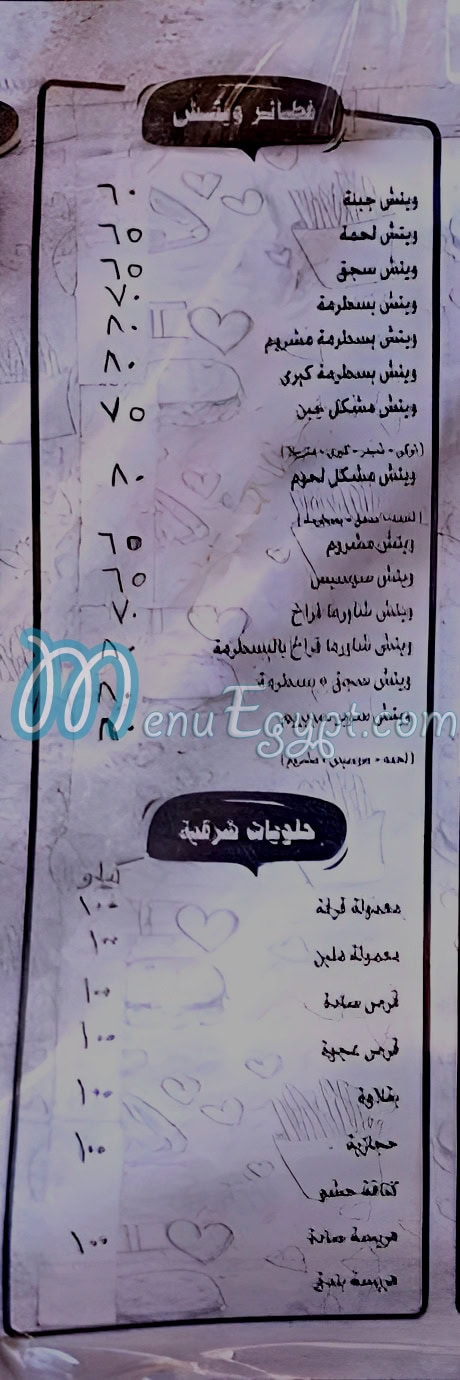 فطائر ويتش
ويتش جبنة ٦٠
ويتش لحمة ٦٥
ويتش سجق ٦٥
ويتش بسطرمة ٧٠
ويتش بسطرمة مشروم ٨٠
ويتش بسطرمة كيرى ٨٠
ويتش مشكل جبن ٧٥
ويتش مشكل لحوم ٨٠
ويتش مشروم ٦٥
ويتش سوسيس ٦٥
ويتش شاورما فراخ ٧٠
ويتش شاورما فراخ بالبسطرمة
ويتش سجق + بسطرمة
ويتش سوبر سوبريم
MenuEgypt.com
حلويات شرقية
كيلو
معمولة قرفة ١٠٠
معمولة ملبن ١٠٠
قرص سادة ١٠٠
قرص عجوة ١٠٠
بقلاوة ١٠٠
حجازية ١٠٠
كنافة حشو
هريسة سادة ١٠٠
هريسة بندق